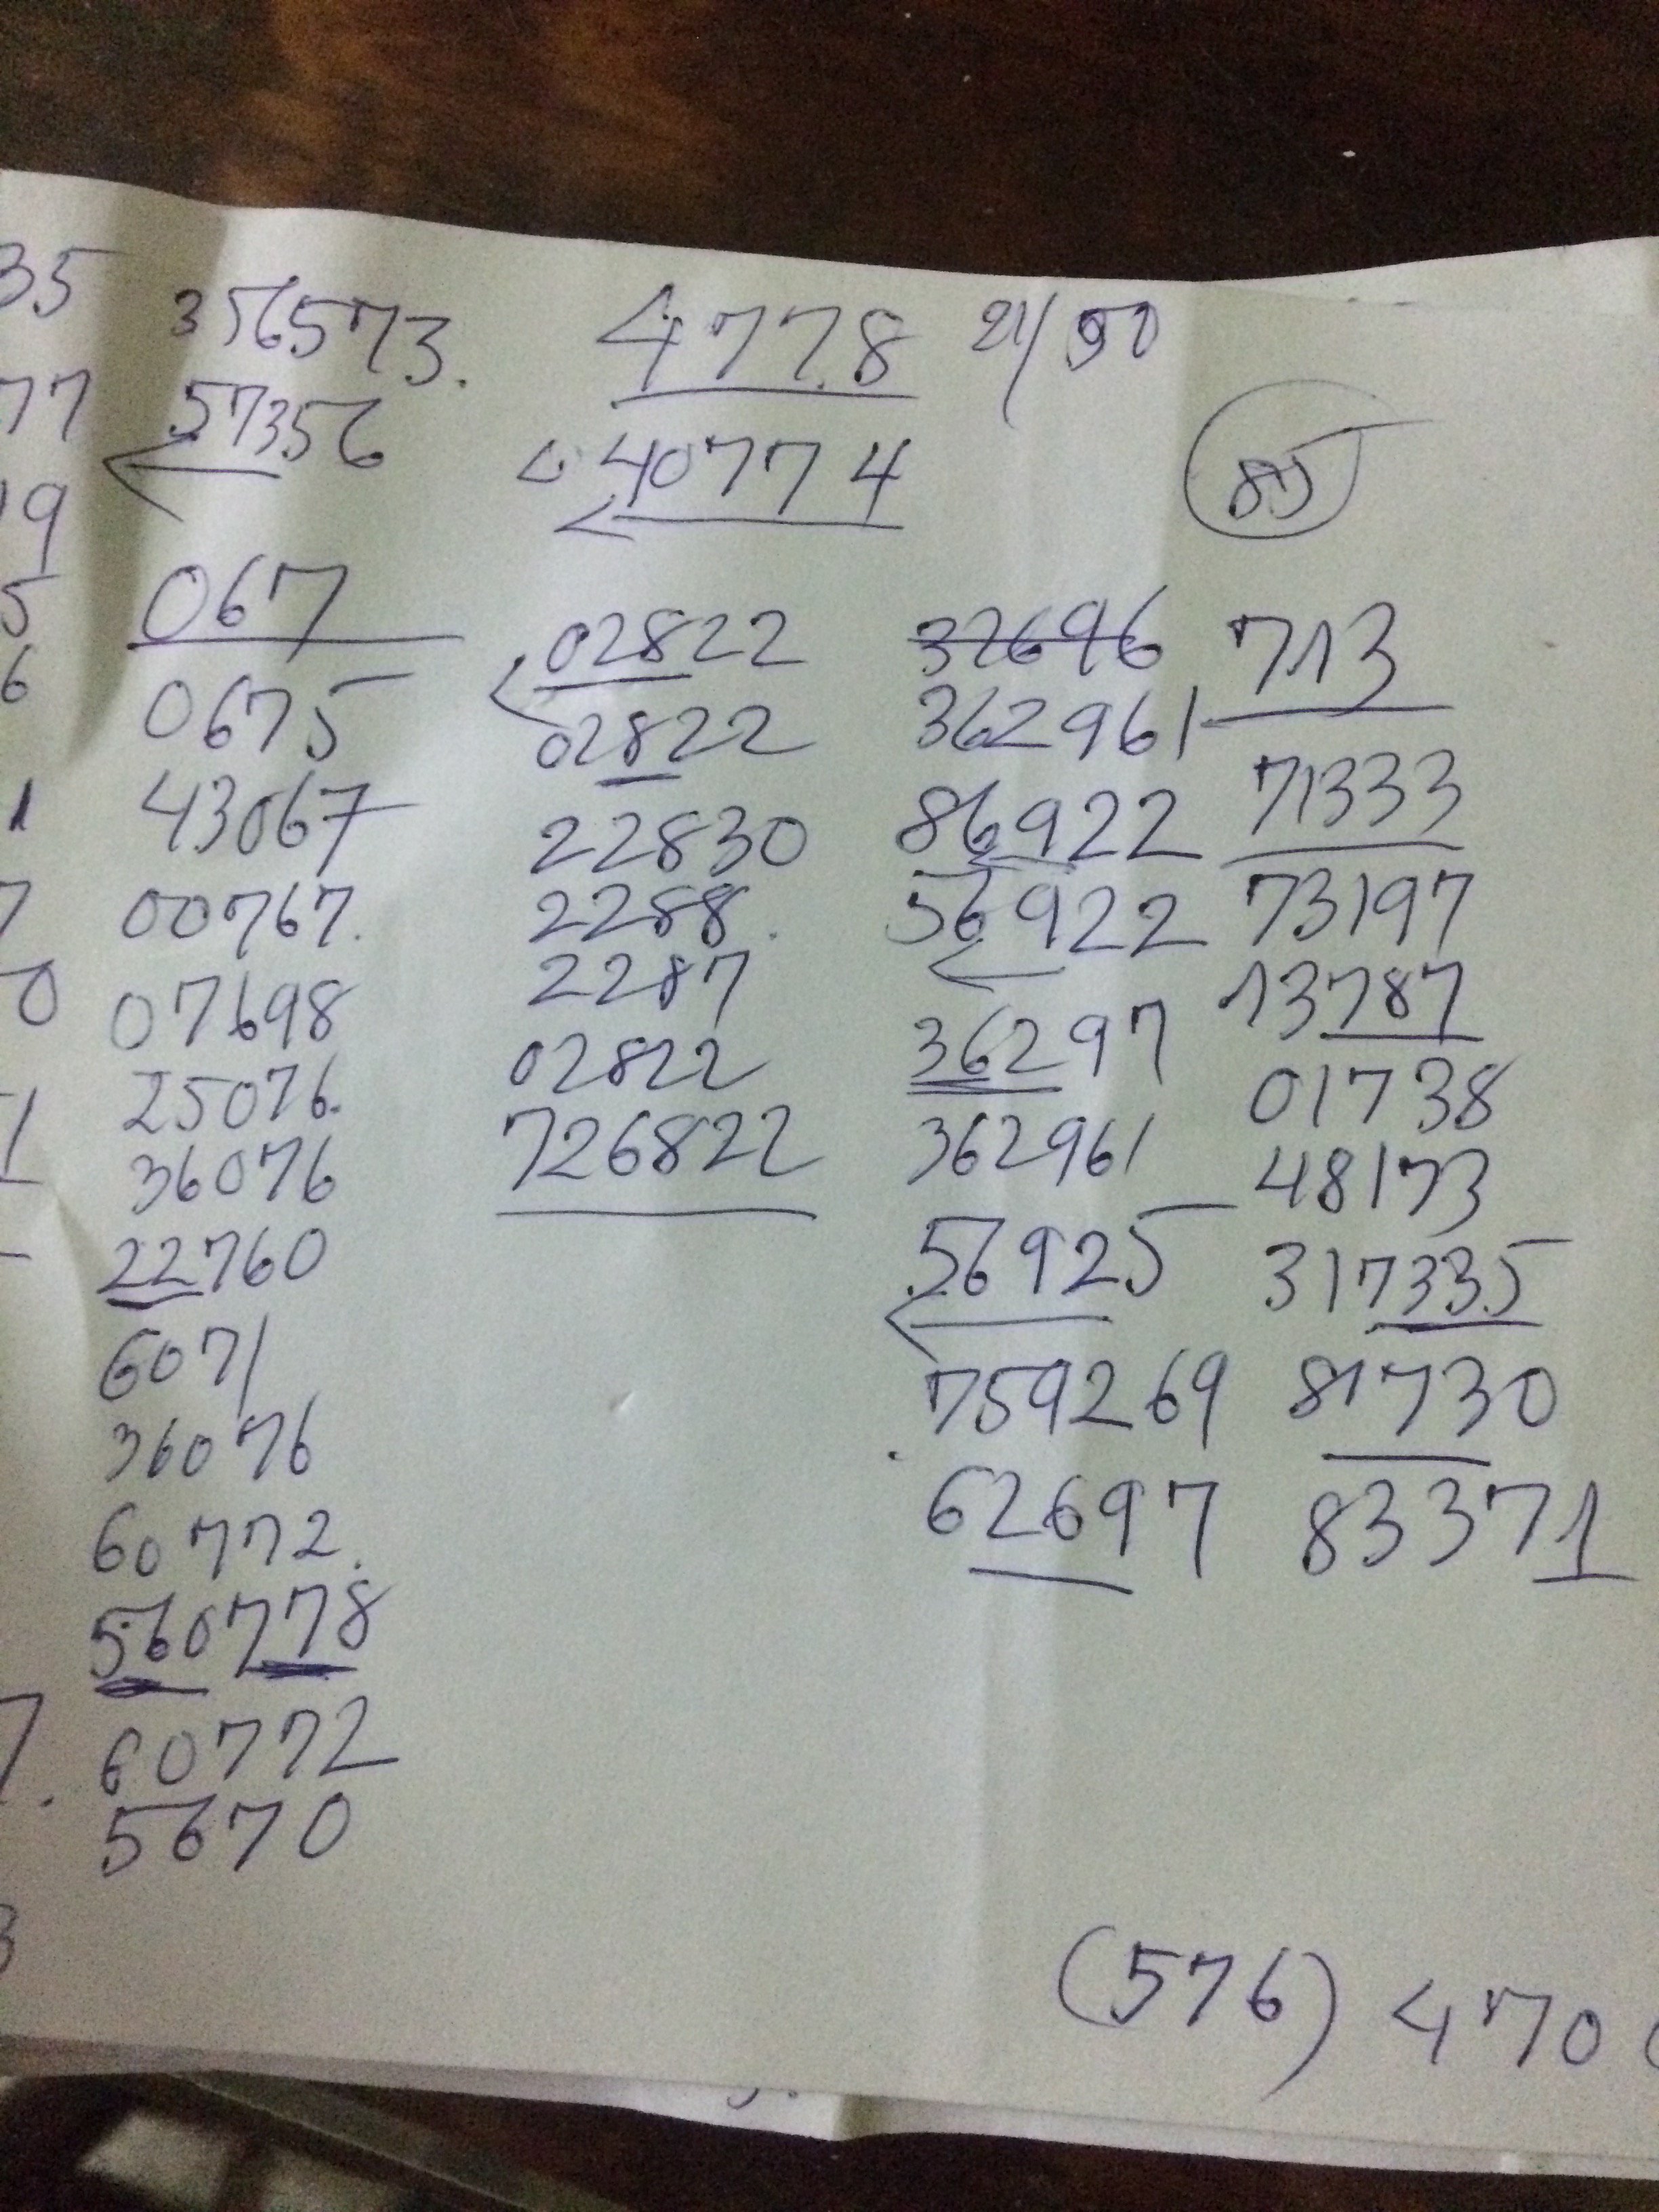 35 356573. 4778 21/50
77 57356
40774 85
19
5 067 02822 32696 713
6 0675 02822 362961 71333
1 43067 22830 86922 73197
7 00767. 2288. 56922 13787
0 07698 2287 36297 01738
25076. 02822 362961 48173
1 36076 726822 56925 317335
22760 759269 81730
6071 62697 83371
36076
60772.
560778
7. 60772
5670
3
(576) 470